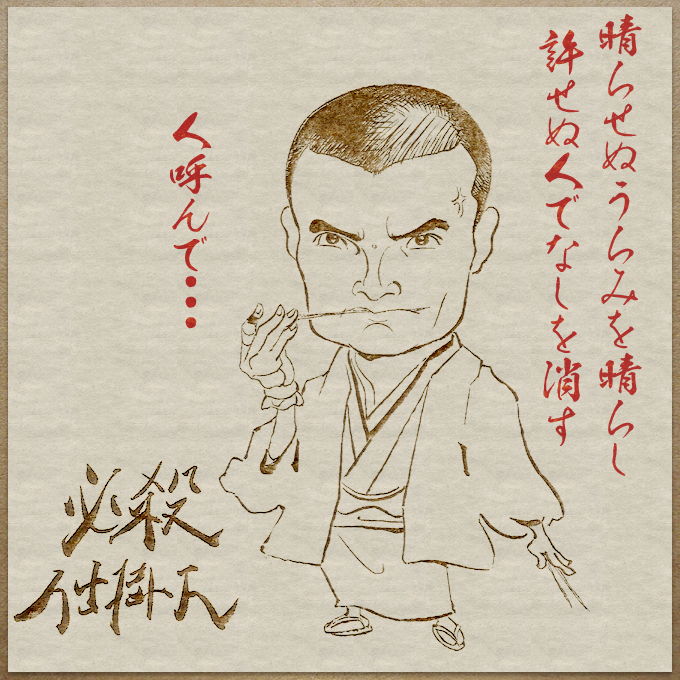 晴らせぬうらみを晴らし
許せぬ人でなしを消す
人呼んで・・・
必殺
仕掛人